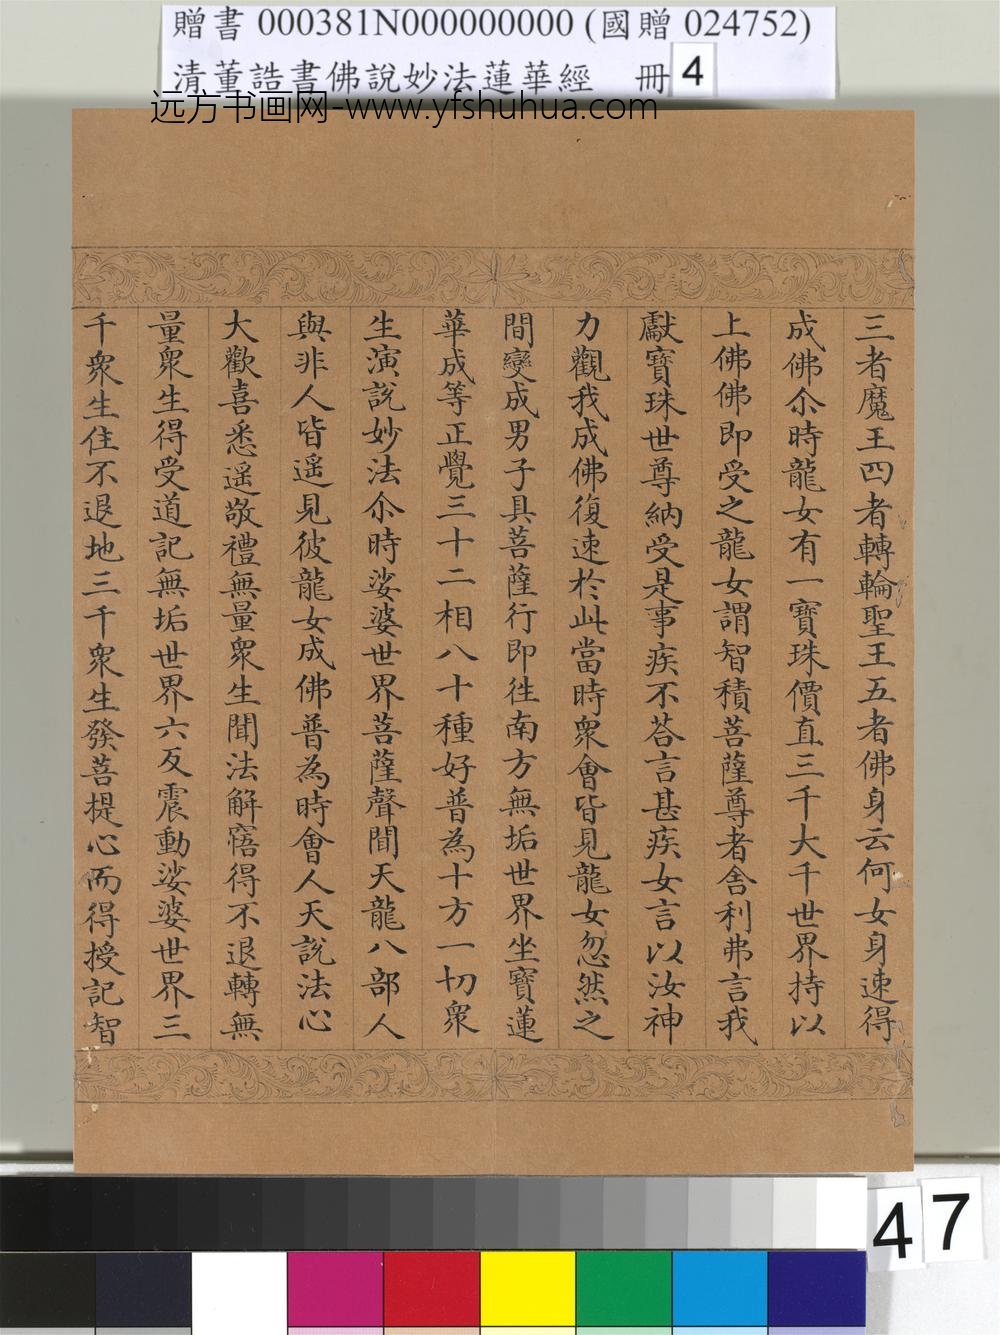 贈書 000381N000000000 (國贈 024752)
清董誥書佛說妙法蓮華經 冊 4
远方书画网-www.yfshuhua.com
三者魔王四者轉輪聖王五者佛身云何女身速得
成佛尒時龍女有一寶珠價直三千大千世界持以
上佛佛即受之龍女謂智積菩薩尊者舍利弗言我
獻寶珠世尊納受是事疾不荅言甚疾女言以汝神
力觀我成佛復速於此當時衆會皆見龍女忽然之
間變成男子具菩薩行即往南方無垢世界坐寶蓮
華成等正覺三十二相八十種好普為十方一切衆
生演說妙法尒時娑婆世界菩薩聲聞天龍八部人
與非人皆遥見彼龍女成佛普為時會人天說法心
大歡喜悉遥敬禮無量衆生聞法解寤得不退轉無
量衆生得受道記無垢世界六反震動娑婆世界三
千衆生住不退地三千衆生發菩提心而得授記智
47